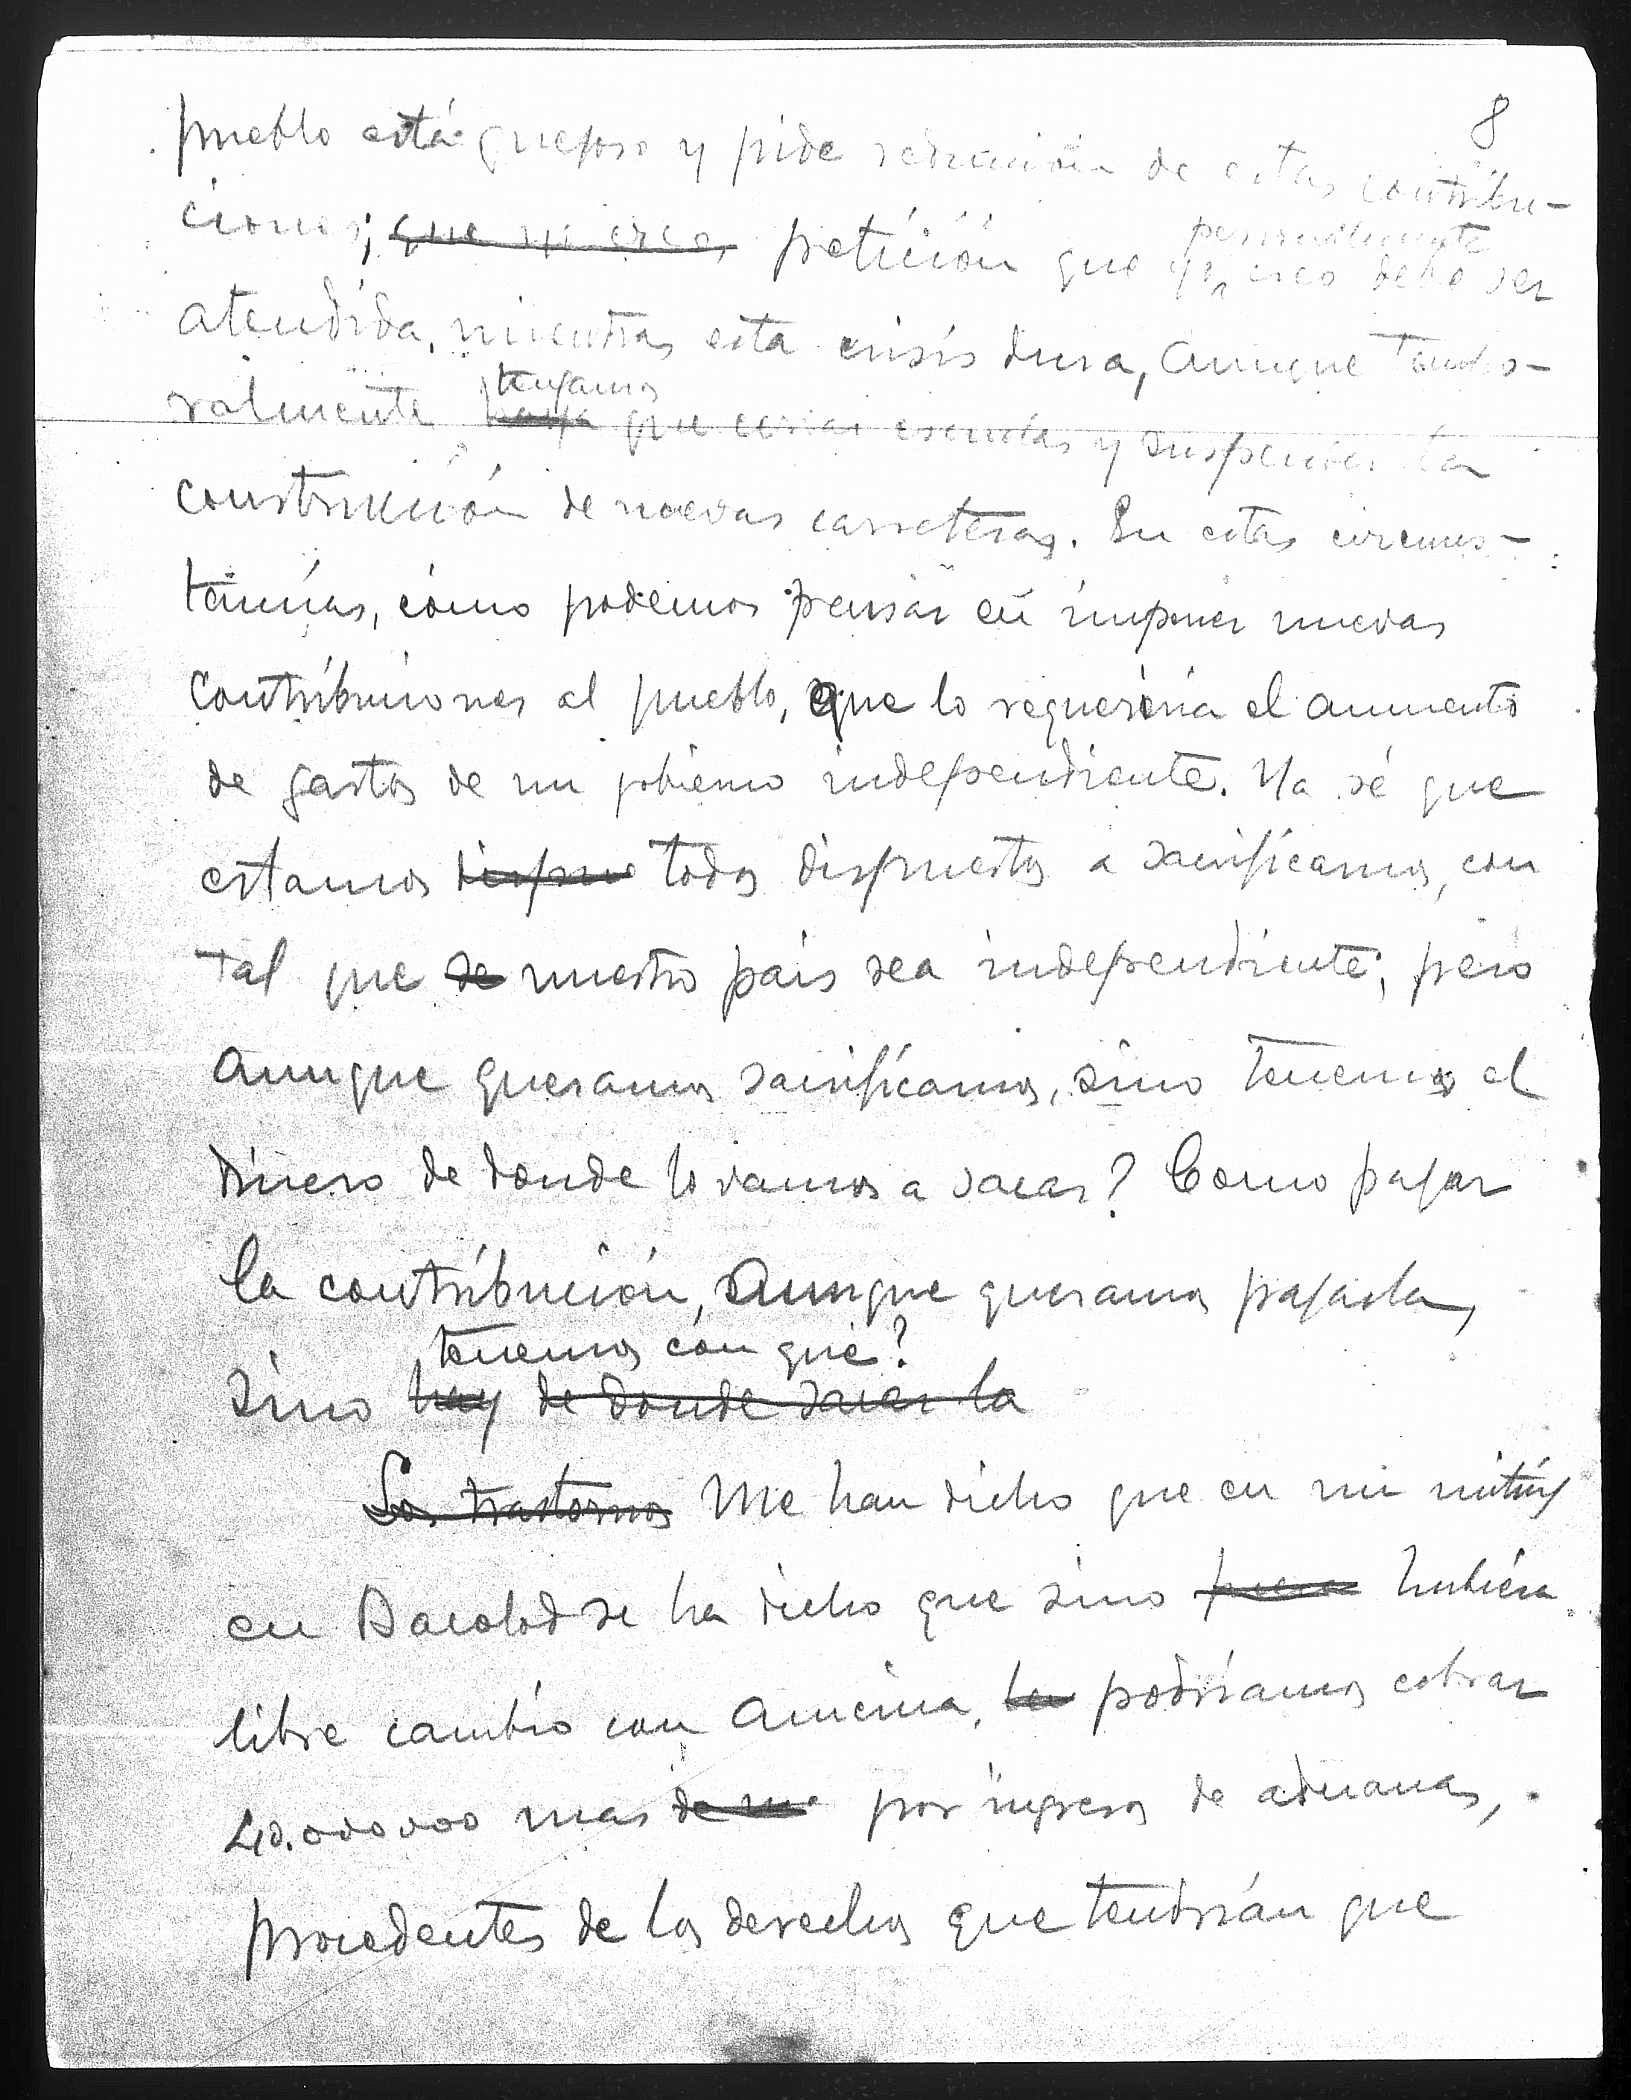 8
pueblo está quejoso y pide reducción de estas contribu-
ciones; que yo creo petición que yo personalmente creo debe ser
atendida, mientras esta crisis dura, aunque tempo-
ralmente haya tengamos que cerrar escuelas y suspender la
construcción de nuevas carreteras. En estas circuns-
tancias, cómo podemos pensar en imponer nuevas
contribuciones al pueblo, que lo requeriría el aumento
de gastos de un gobierno independiente. Ya sé que
estamos dispue todos dispuestos a sacrificarnos, con
tal que se nuestro país sea independiente; pero
aunque queramos sacrificarnos, sino tenemos el
dinero de donde lo vamos a sacar? Como pagar
la contribución, aunque queramos pagarla,
sino hay de donde sacar la tenemos con qué?
Los trastornos Me han dicho que en un mitin
en Bacolod se ha dicho que sino fuera hubiera
libre cambio con America, podríamos cobrar
40.000000 mas de por ingresos de aduanas,
procedentes de los derechos que tendrían que